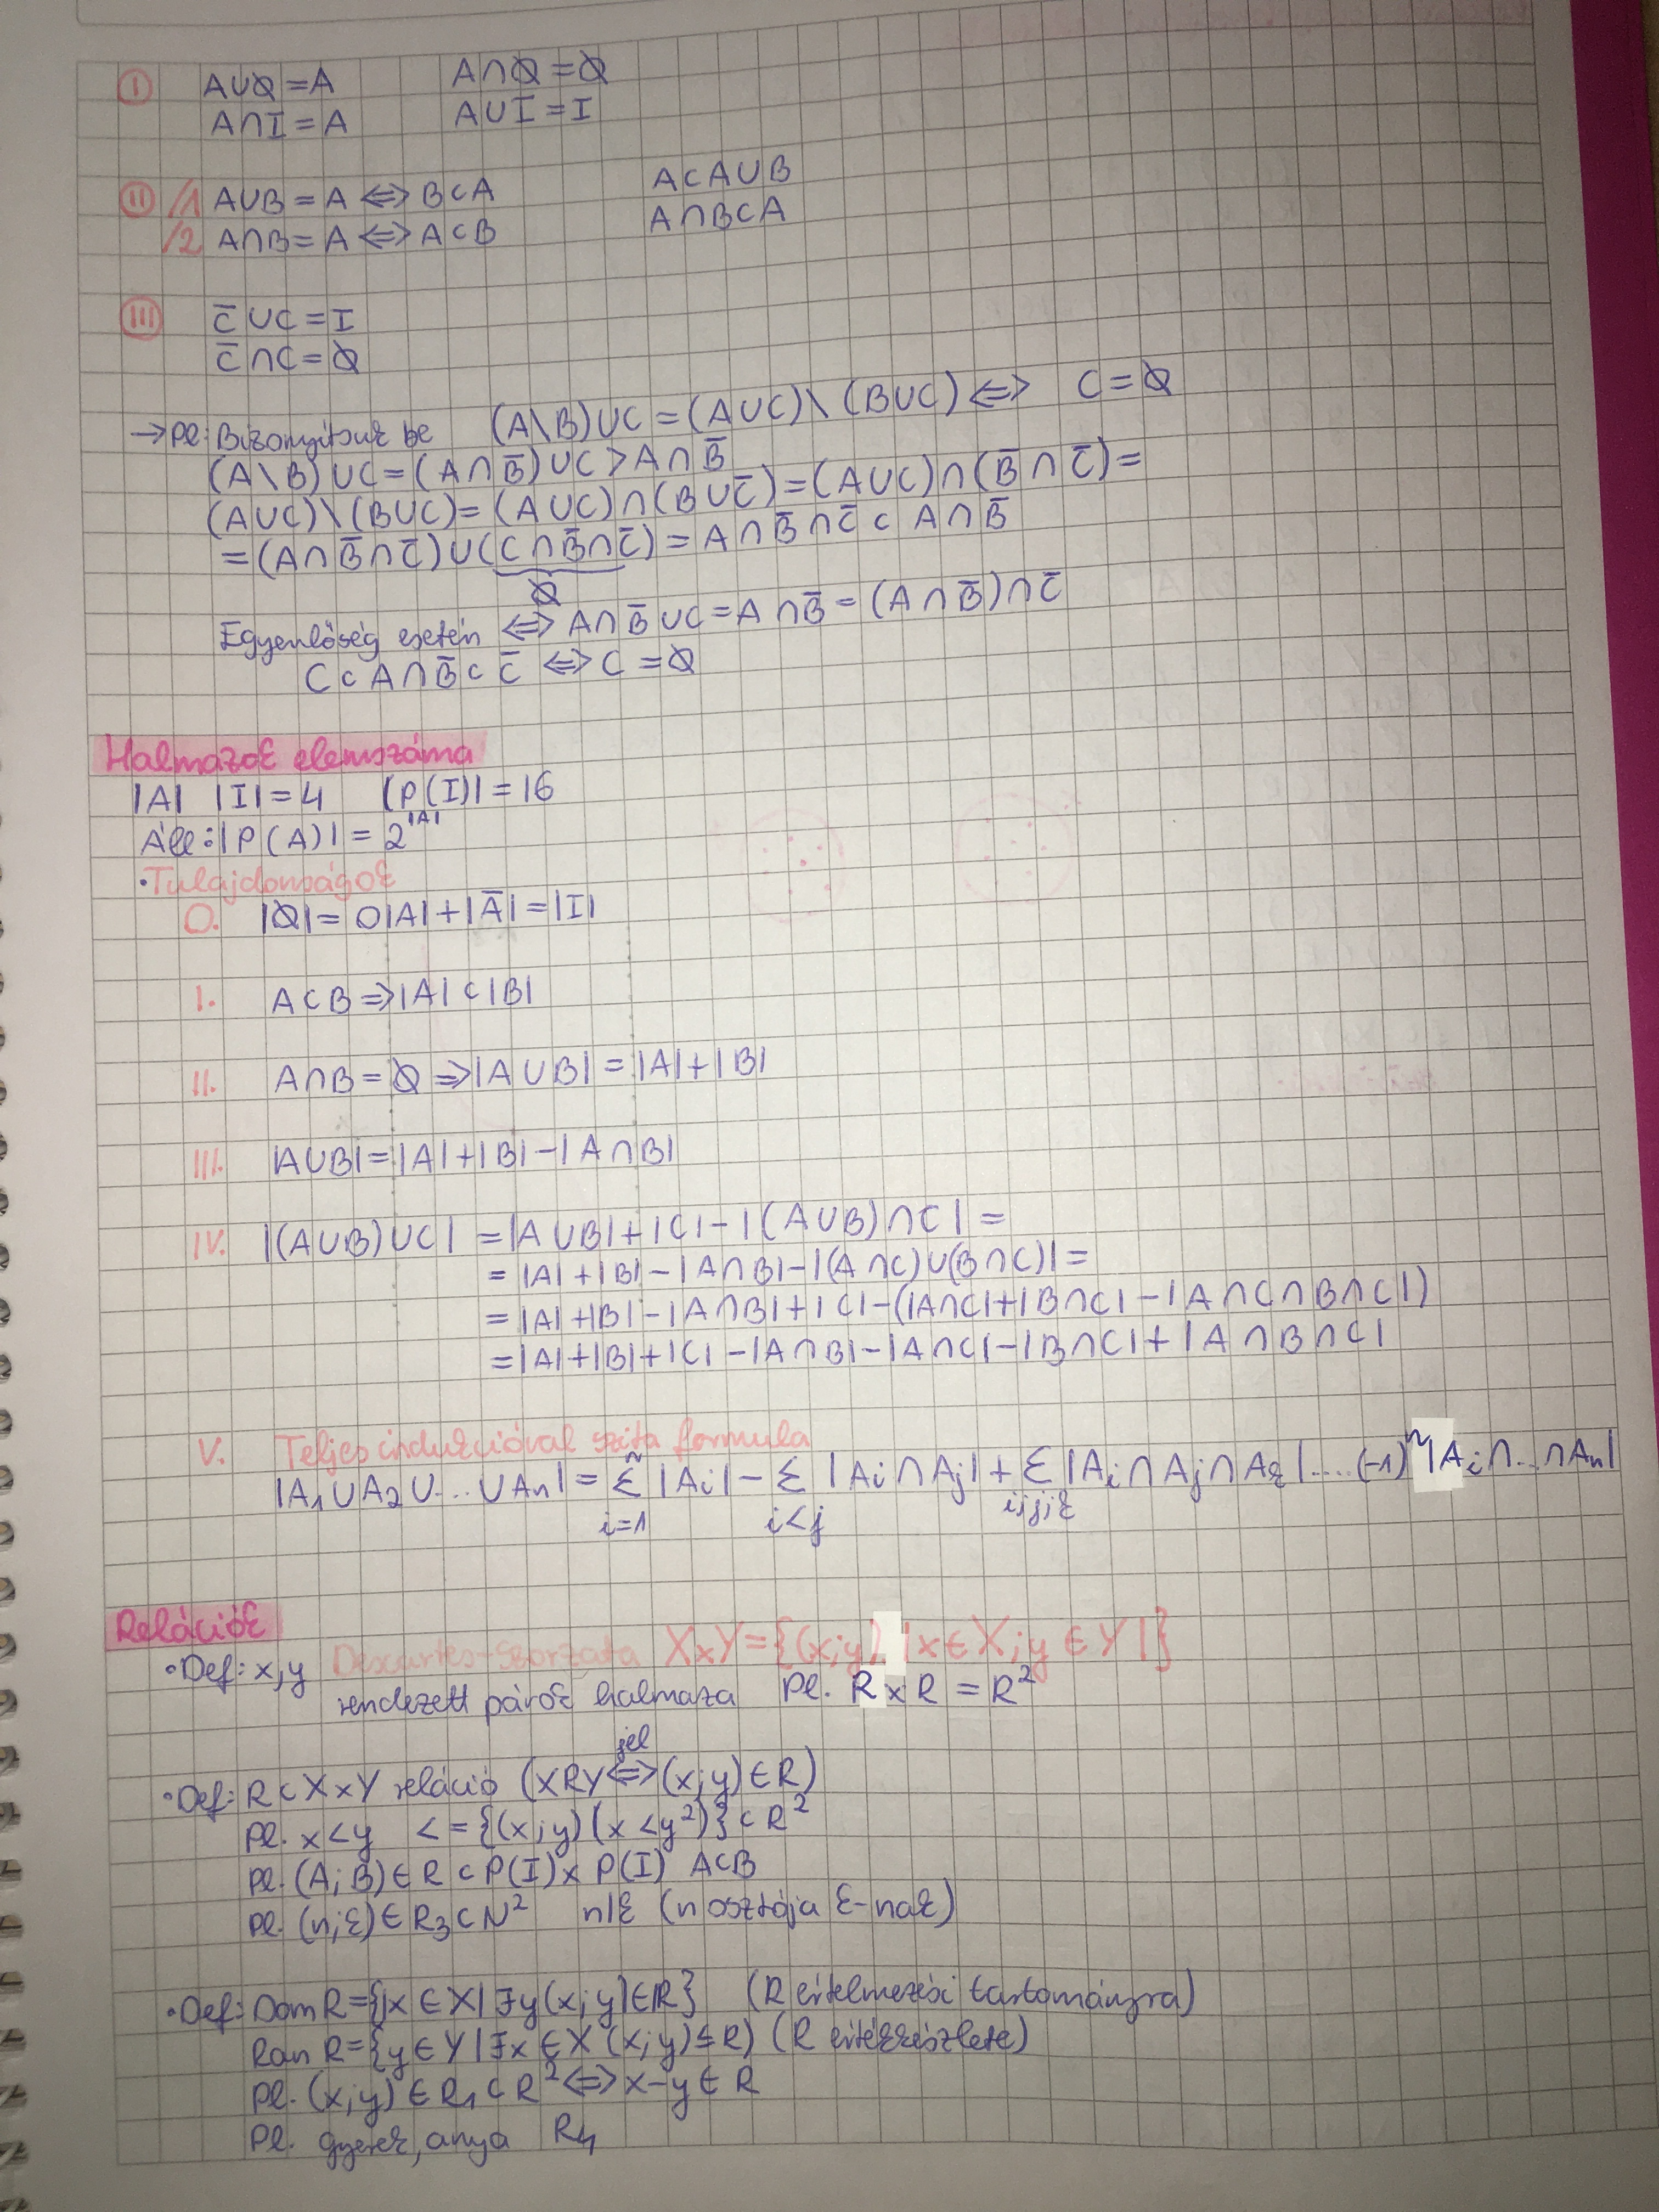 I A∪∅=A A∩∅=∅
A∩I=A A∪I=I
II /1 A∪B=A ⇔ B⊂A A⊂A∪B
/2 A∩B=A ⇔ A⊂B A∩B⊂A
III C̅∪C=I
C̅∩C=∅
→Pl: Bizonyítsuk be (A\B)∪C=(A∪C)\(B∪C) ⇔ C=∅
(A\B)∪C=(A∩B̅)∪C>A∩B̅
(A∪C)\(B∪C)=(A∪C)∩(B∪C̅)=(A∪C)∩(B̅∩C̅)=
=(A∩B̅∩C̅)∪(C∩B̅∩C̅)=A∩B̅∩C̅⊂A∩B̅
∅
Egyenlőség esetén ⇔ A∩B̅∪C=A∩B̅=(A∩B̅)∩C̅
C⊂A∩B̅⊂C̅ ⇔ C=∅
Halmazok elemszáma
|A| |I|=4 |P(I)|=16
Áll:|P(A)|=2^|A|
•Tulajdonságok
0. |∅|=0|A|+|A̅|=|I|
I. A⊂B ⇒ |A|⊂|B|
II. A∩B=∅ ⇒ |A∪B|=|A|+|B|
III. |A∪B|=|A|+|B|-|A∩B|
IV. |(A∪B)∪C| =|A∪B|+|C|-|(A∪B)∩C|=
=|A|+|B|-|A∩B|-|(A∩C)∪(B∩C)|=
=|A|+|B|-|A∩B|+|C|-(|A∩C|+|B∩C|-|A∩C∩B∩C|)
=|A|+|B|+|C|-|A∩B|-|A∩C|-|B∩C|+|A∩B∩C|
V. Teljes indukcióval szita formula
|A₁∪A₂∪...∪Aₙ|=Σ|Aᵢ|-Σ|Aᵢ∩Aⱼ|+Σ|Aᵢ∩Aⱼ∩Aₖ|....(-1)ⁿ|Aᵢ∩...∩Aₙ|
i=1 i<j i;j;k
Relációk
•Def: x,y Descartes-szorzata X×Y={(x;y) |x∈X;y∈Y|}
rendezett párok halmaza Pl. R×R=R²
jel
•Def: R⊂X×Y reláció (XRY⇔(x;y)∈R)
Pl. x<y <={(x;y)(x<y²)}⊂R²
Pl. (A;B)∈R⊂P(I)×P(I) A⊂B
Pl. (n;k)∈R₃⊂N² n|k (n osztója k-nak)
•Def: Dom R={|x∈X|∃y(x;y)∈R} (R értelmezési tartománya)
Ran R={y∈Y|∃x∈X (x;y)≤R) (R értékkészlete)
Pl. (x;y)∈R₁⊂R²⇔x-y∈R
Pl. gyerek, anya R₄